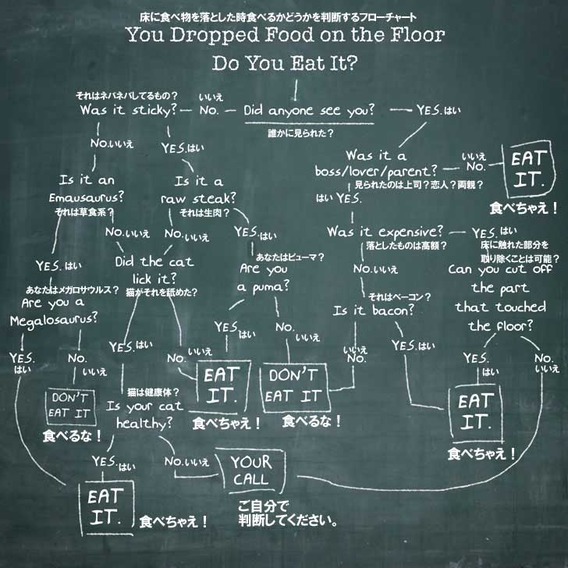 床に食べ物を落とした時食べるかどうかを判断するフローチャート
You Dropped Food on the Floor
Do You Eat It?
それはネバネバしてるもの?
Was it sticky?
いいえ
No.
Did anyone see you?
誰かに見られた?
YES.はい
No.いいえ
YES.はい
Was it a
boss/lover/parent?
見られたのは上司?恋人?両親?
いいえ
No.
EAT
IT.
食べちゃえ!
Is it an
Emausaurus?
それは草食系?
Is it a
raw steak?
それは生肉?
はい YES.
Was it expensive?
落としたものは高額?
YES.はい
床に触れた部分を
取り除くことは可能?
Can you cut off
the part
that touched
the floor?
YES.はい
No.いいえ
No.いいえ
YES.はい
あなたはメガロサウルス?
Are you a
Megalosaurus?
Did the cat
lick it?
猫がそれを舐めた?
あなたはピューマ?
Are you
a puma?
No.いいえ
それはベーコン?
Is it bacon?
YES.
はい
No.
いいえ
YES.はい
No.
いいえ
YES.はい
No.
いいえ
いいえ
No.
YES.はい
YES.
はい
No.
いいえ
DON'T
EAT IT
食べるな!
猫は健康体?
Is your cat
healthy?
EAT
IT.
食べちゃえ!
DON'T
EAT IT
食べるな!
EAT
IT.
食べちゃえ!
YES.はい
No.いいえ
YOUR
CALL
ご自分で
判断してください。
EAT
IT.
食べちゃえ!